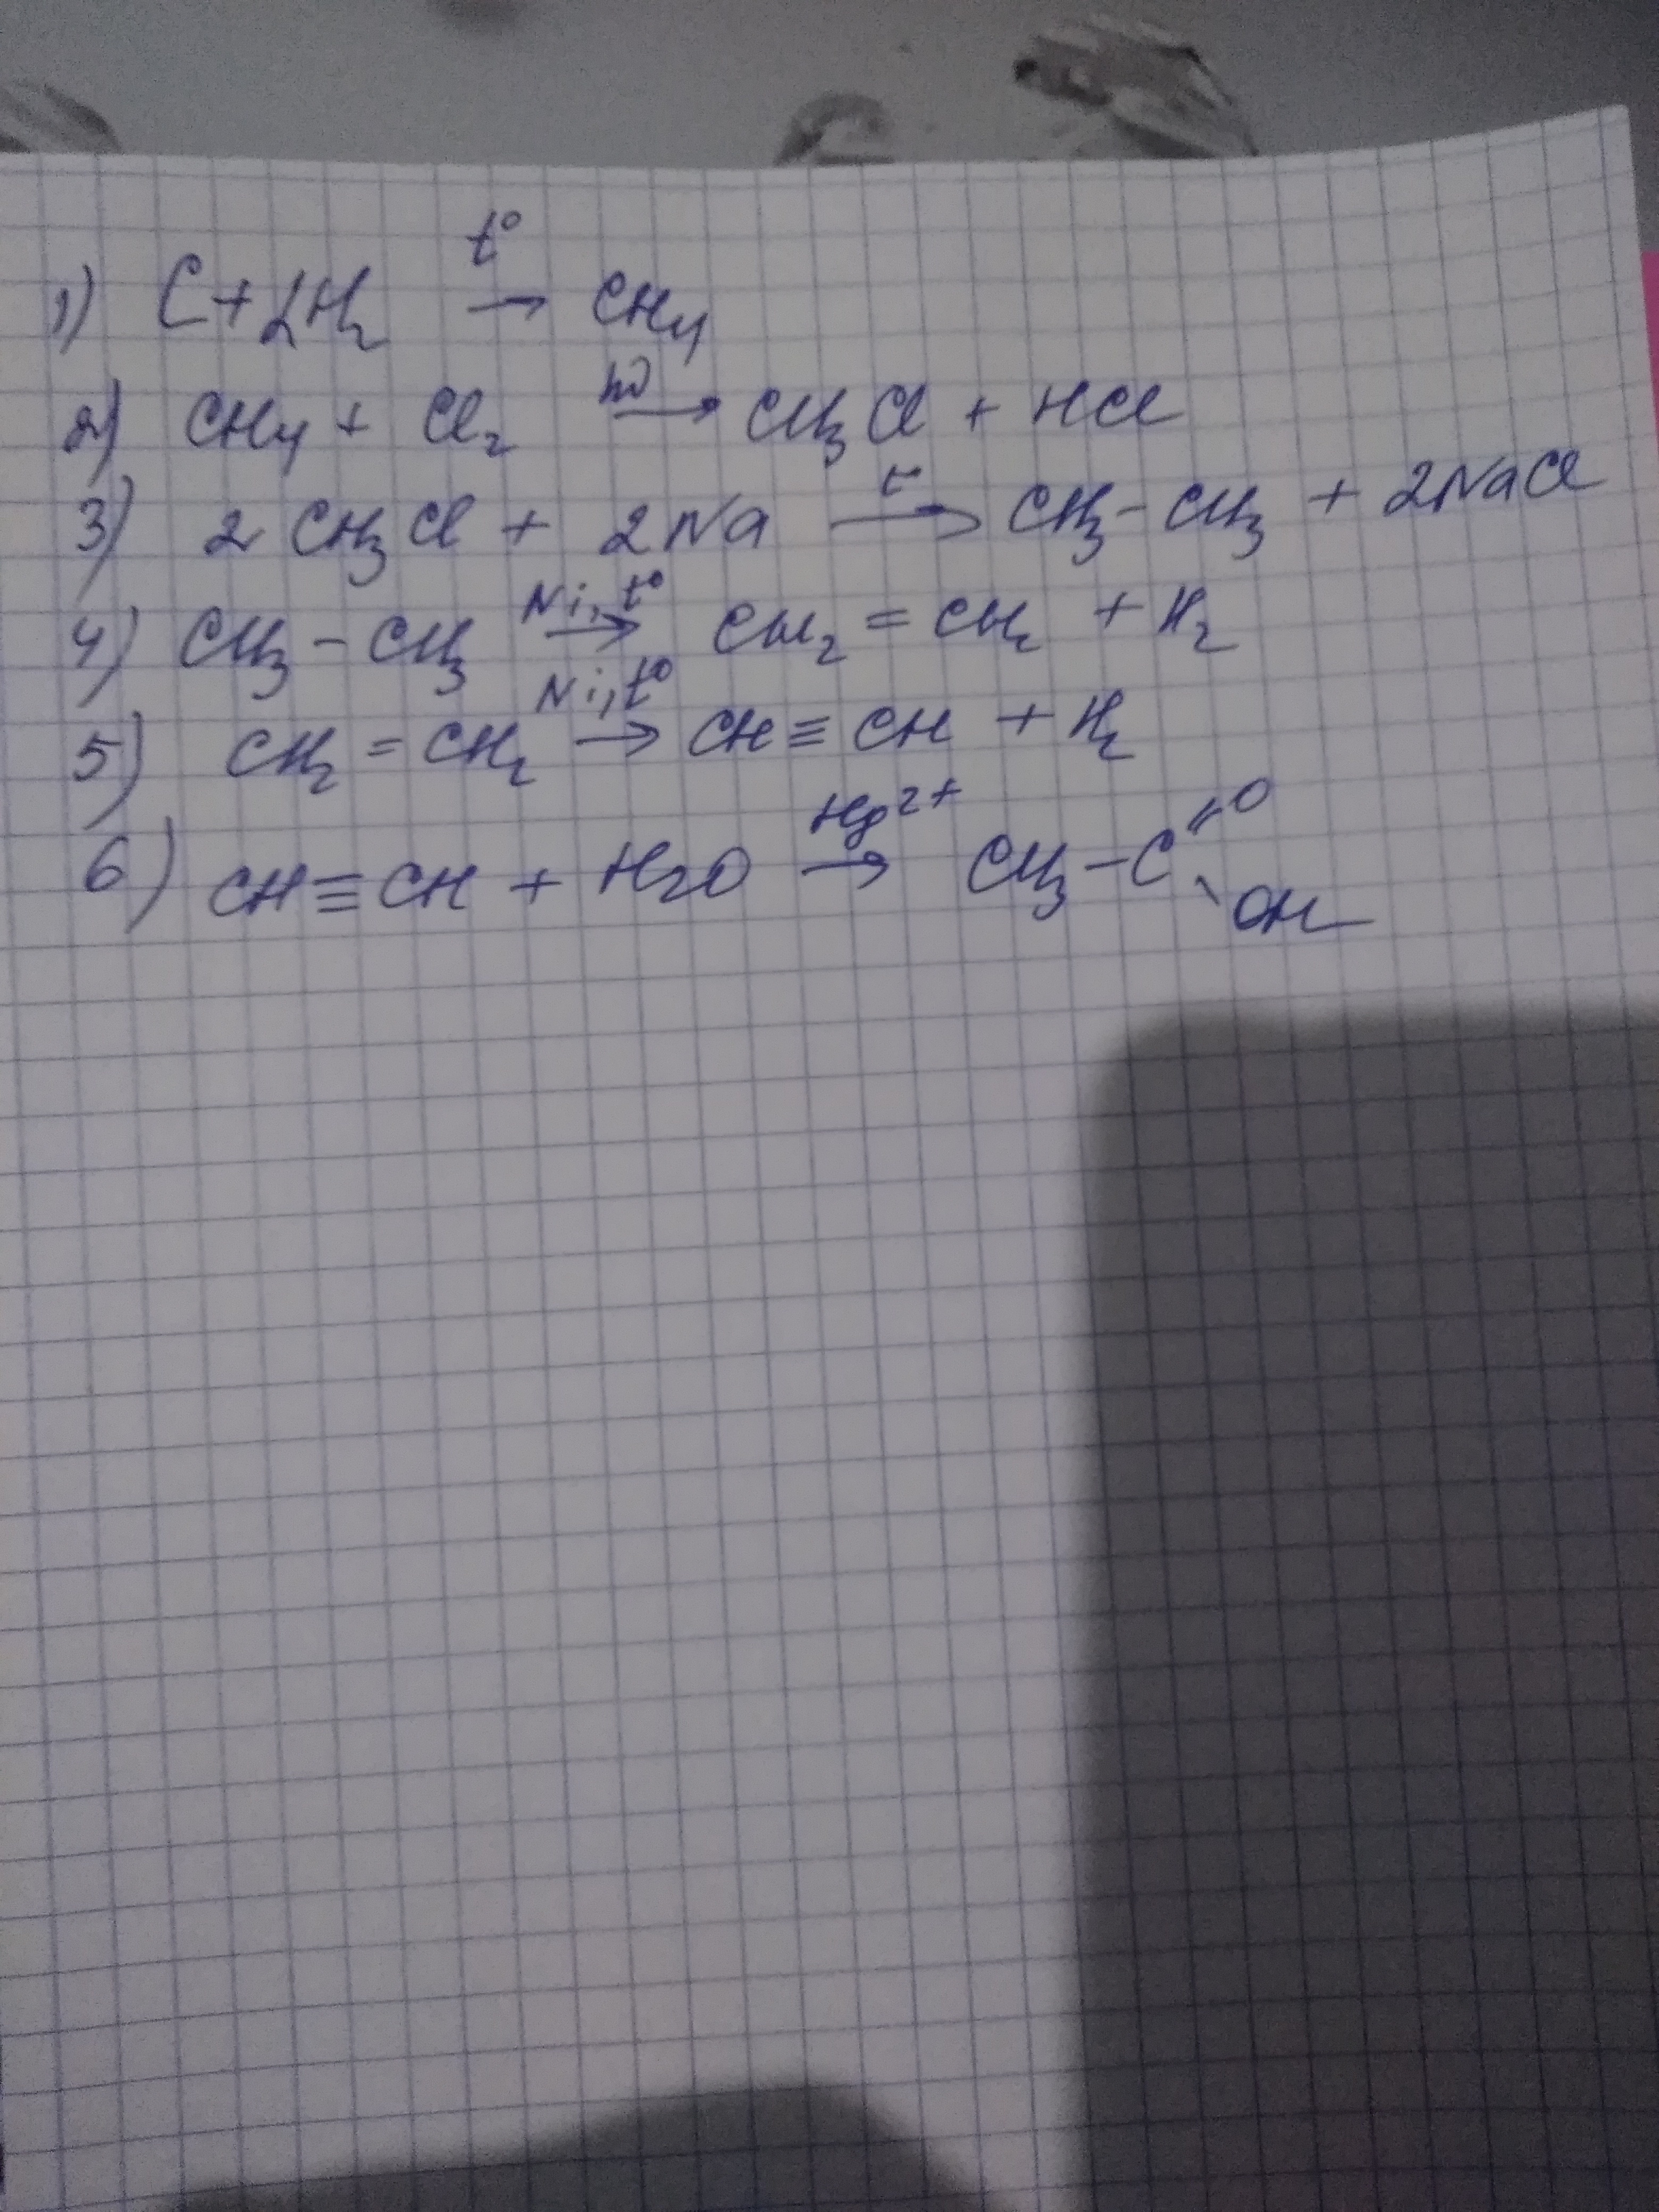 1) C + 2H₂ t° → CH₄
2) CH₄ + Cl₂ hν → CH₃Cl + HCl
3) 2CH₃Cl + 2Na t° → CH₃-CH₃ + 2NaCl
4) CH₃-CH₃ Ni, t° → CH₂=CH₂ + H₂
5) CH₂=CH₂ Ni, t° → CH≡CH + H₂
6) CH≡CH + H₂O Hg²⁺ → CH₃-C=O \ OH